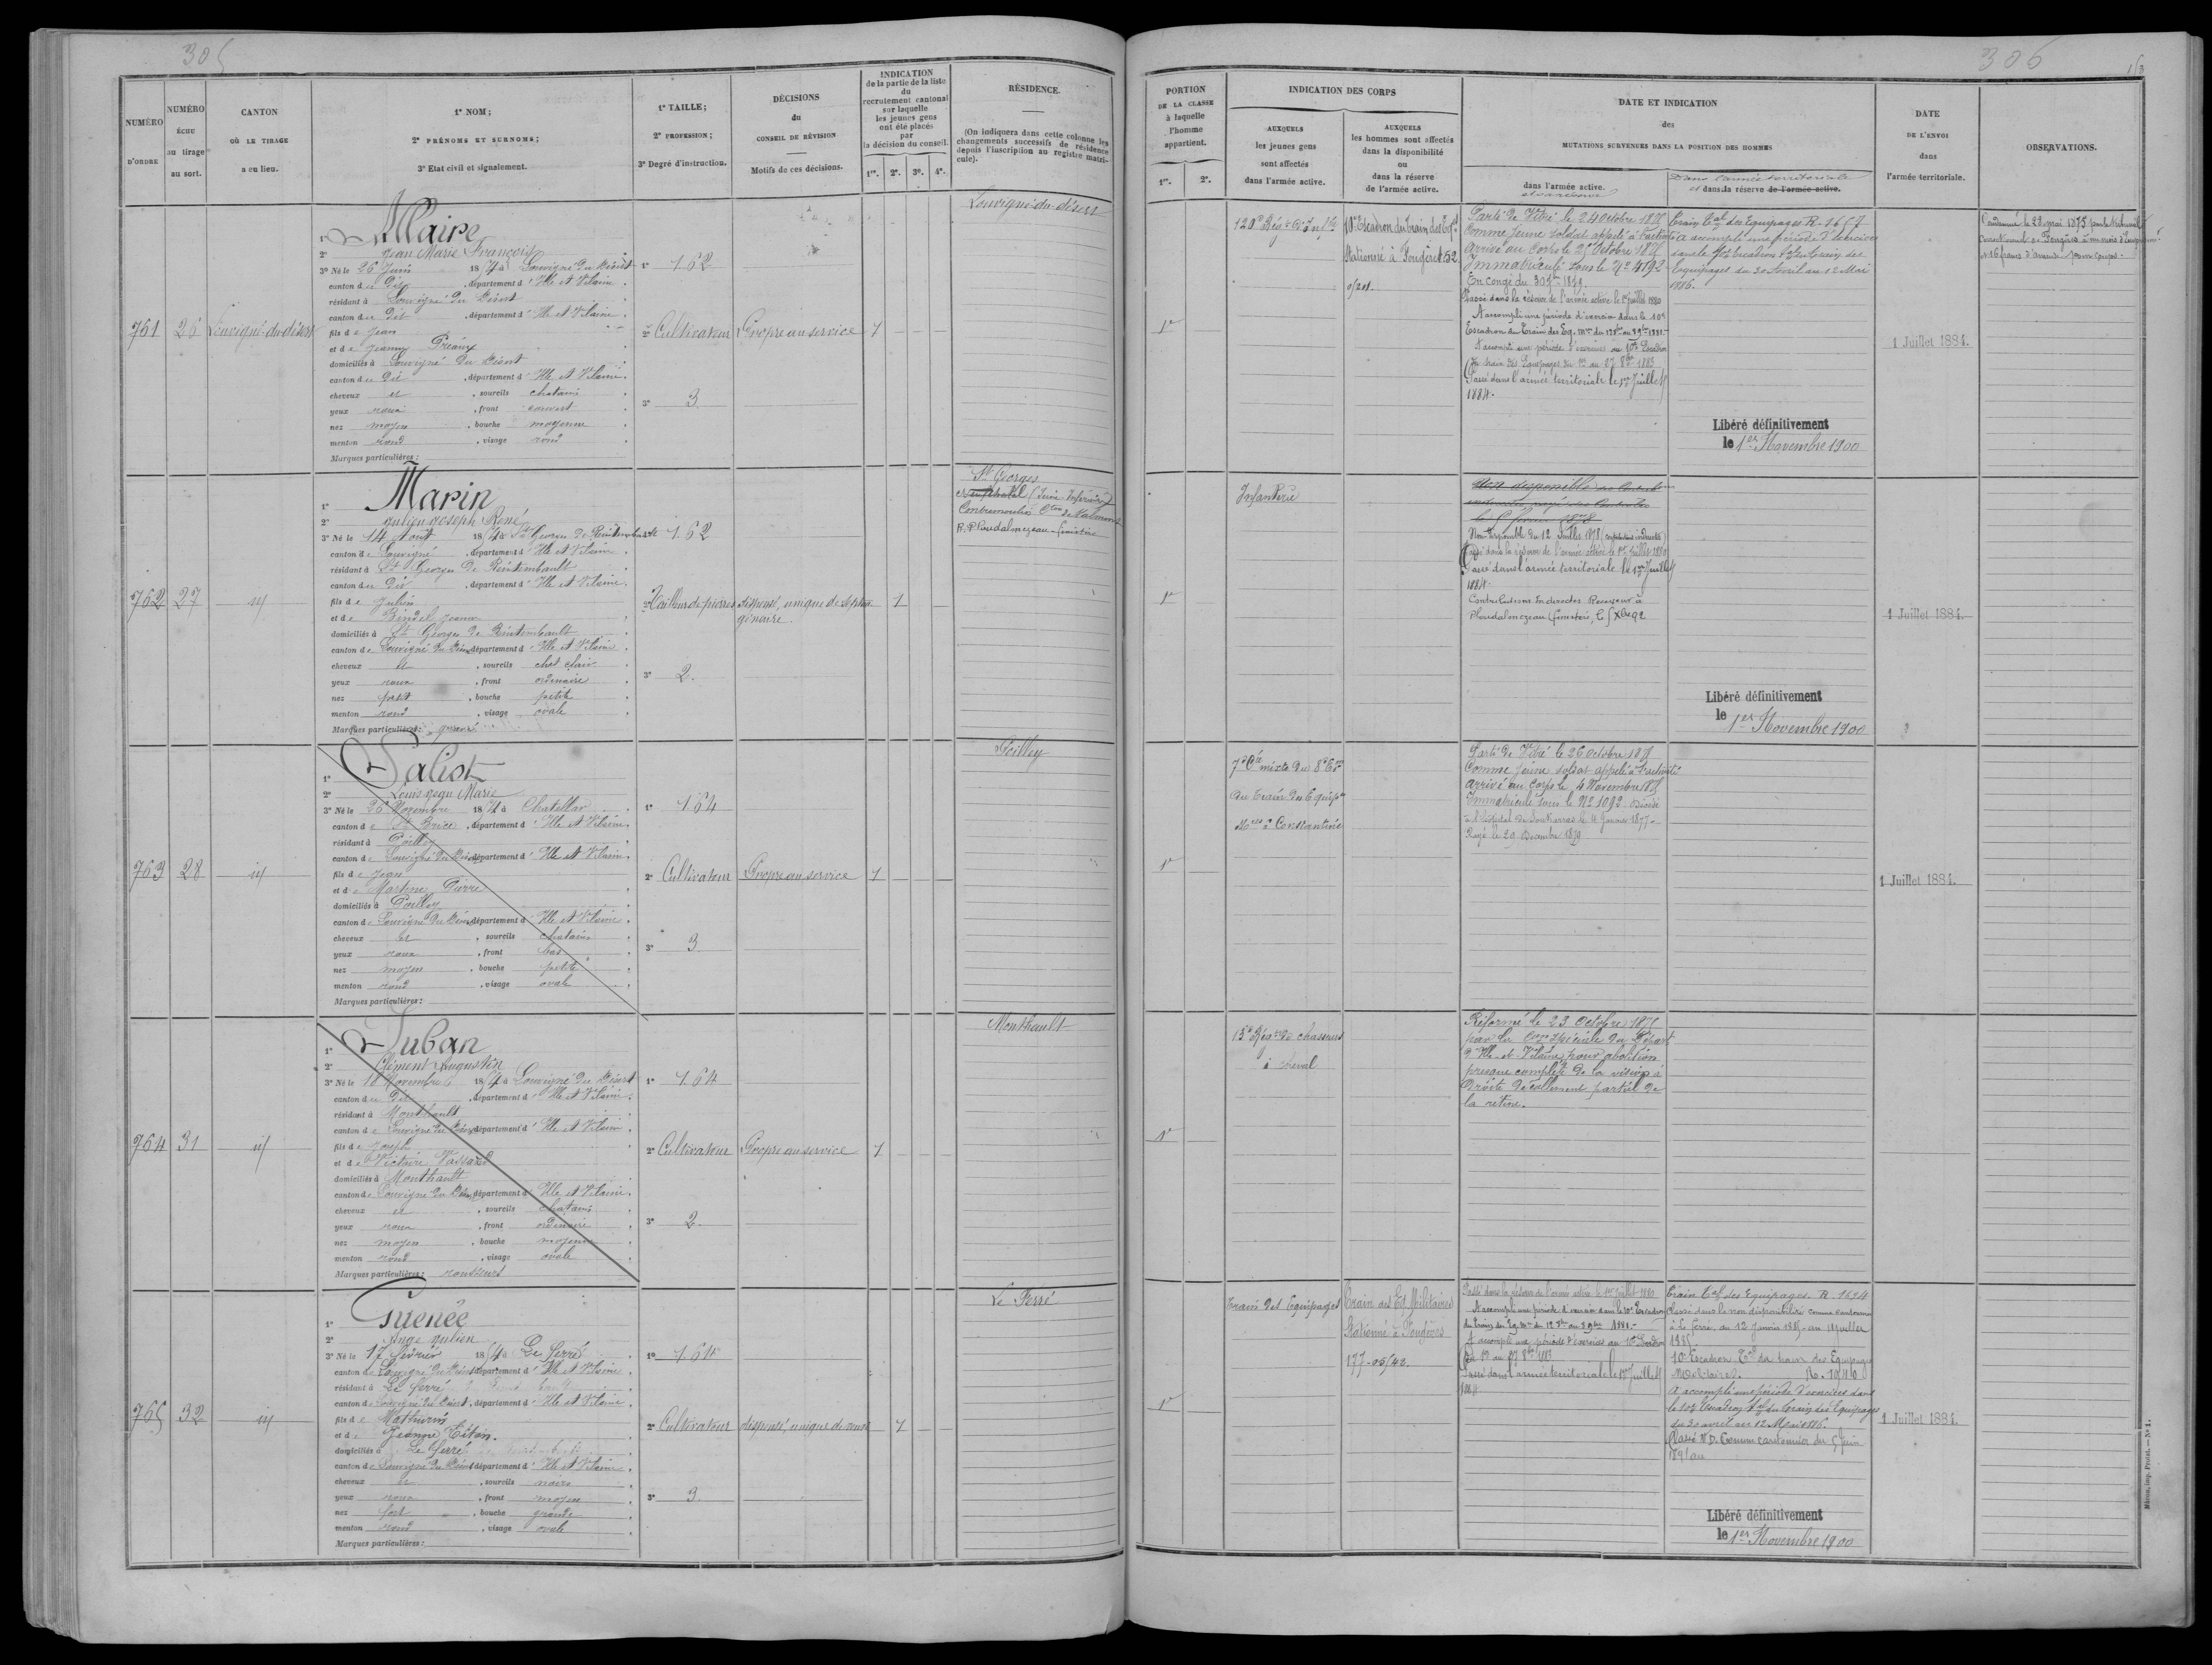 305
NUMÉRO D'ORDRE
NUMÉRO échu au tirage au sort.
CANTON OÙ LE TIRAGE a eu lieu.
1° NOM;
2° PRÉNOMS ET SURNOMS;
3° Etat civil et signalement.
1° TAILLE;
2° PROFESSION;
3° Degré d'instruction.
DÉCISIONS du CONSEIL DE RÉVISION
Motifs de ces décisions.
INDICATION de la partie de la liste du recrutement cantonal sur laquelle les jeunes gens ont été placés par la décision du conseil.
1re. 2e. 3e. 4e.
RÉSIDENCE.
(On indiquera dans cette colonne les changements successifs de résidence depuis l'inscription au registre matricule).
761
26
Louvigné-du-désert
1° Maire
2° Jean Marie François
3° Né le 26 Juin 1854 à Louvigné du Désert
canton de Dit, département d'Ille et Vilaine.
résidant à Louvigné du Désert
canton de Dit, département d'Ille et Vilaine.
fils de Jean
et de Jeanne Préaux
domiciliés à Louvigné du Désert
canton du Dit, département d'Ille et Vilaine.
cheveux et, sourcils chatains
yeux roux, front couvert
nez moyen, bouche moyenne
menton rond, visage rond
Marques particulières:
1° 162
2° Cultivateur
3° 3
Propre au service
1
Louvigné-du-désert
762
27
id
1° Marin
2° Julien Joseph René
3° Né le 14 Août 1854 à St Georges de Reintembault
canton de Louvigné, département d'Ille et Vilaine
résidant à St Georges de Reintembault
canton du Dit, département d'Ille et Vilaine.
fils de Julien
et de Bindel Jeanne
domiciliés à St Georges de Reintembault
canton de Louvigné du Désert département d'Ille et Vilaine.
cheveux et, sourcils chat clair
yeux roux, front ordinaire
nez petit, bouche petite
menton rond, visage ovale
Marques particulières:
1° 162
2° Tailleur de pierres
3° 2.
dispensé, unique de septuagénaire.
1
St Georges
763
28
id
1° Saliot
2° Louis Jean Marie
3° Né le 26 Novembre 1854 à Chatellier
canton de St Brice, département d'Ille et Vilaine.
résidant à Poilley
canton de Louvigné du Désert département d'Ille et Vilaine.
fils de Jean
et de Martine Pierre
domiciliés à Poilley
canton de Louvigné du Désert département d'Ille et Vilaine.
cheveux et, sourcils chatains
yeux roux, front bas
nez moyen, bouche petite
menton rond, visage ovale
Marques particulières:
1° 164
2° Cultivateur
3° 3
Propre au service
1
Poilley
764
31
id
1° Juban
2° Clément Augustin
3° Né le 18 Novembre 1854 à Louvigné du Désert
canton du Dit, département d'Ille et Vilaine.
résidant à Monthault
canton de Louvigné du Désert département d'Ille et Vilaine.
fils de Joseph
et de Victoire Vassard
domiciliés à Monthault
canton de Louvigné du Désert département d'Ille et Vilaine.
cheveux et, sourcils chatains
yeux roux, front ordinaire
nez moyen, bouche moyenne
menton rond, visage ovale
Marques particulières: rousseurs
1° 164
2° Cultivateur
3° 2.
Propre au service
1
Monthault
765
32
id
1° Guenée
2° Ange Julien
3° Né le 17 février 1854 à Le Ferré
canton de Louvigné du Désert département d'Ille et Vilaine.
résidant à Le Ferré
canton de Louvigné du Désert, département d'Ille et Vilaine.
fils de Mathurin
et de Jeanne Tétan.
domiciliés à Le Ferré
canton de Louvigné du Désert département d'Ille et Vilaine.
cheveux et, sourcils noirs
yeux roux, front moyen
nez fort, bouche grande
menton rond, visage ovale
Marques particulières:
1° 164
2° Cultivateur
3° 3
dispensé, unique de veuve
1
Le Ferré
306
PORTION DE LA CLASSE à laquelle l'homme appartient.
1re. 2e.
INDICATION DES CORPS
AUXQUELS les jeunes gens sont affectés dans l'armée active.
AUXQUELS les hommes sont affectés dans la disponibilité ou dans la réserve de l'armée active.
DATE ET INDICATION des MUTATIONS SURVENUES DANS LA POSITION DES HOMMES
dans l'armée active.
et réserve
Dans l'armée territoriale
et dans la réserve de l'armée active.
DATE DE L'ENVOI dans l'armée territoriale.
OBSERVATIONS.
1re
120e Régt d'Inf.ie
10e Escadron du train des Eqp.
Stationné à Fougères 52
0/201.
Parti de Vitré le 24 Octobre 1875
Comme jeune soldat appelé à l'activité
arrivé au Corps le 25 Octobre 1875
Immatriculé sous le No 4192
En congé du 30 7bre 1879.
Passé dans la réserve de l'armée active le 1er juillet 1880
A accompli une période d'exercices dans le 10e
Escadron du Train des Eq. Mres du 12 8bre au 9 9bre 1881.
A accompli une période d'exercices au 10e Escadron
du train des Equipages du 1er au 27 8bre 1883
Passé dans l'armée territoriale le 1er Juillet
1884.
Train Tal des Equipages R. 1657
A accompli une période d'exercices
dans le 10e Escadron Tal du train des
équipages du 30 Avril au 12 Mai
1886.
Libéré définitivement
le 1er Novembre 1900
1 Juillet 1884.
Condamné le 28 mai 1875 par le tribunal
correctionnel de Fougères à un mois d'Emprisonnt
& 16 francs d'amende
1re
Infanterie
Non disponible du 12 Juillet 1878 (contributions indirectes)
Passé dans la réserve de l'armée active le 1er juillet 1880
Passé dans l'armée territoriale le 1er Juillet
1884.
Contributions Indirectes Receveur à
Ploudalmezeau (finistère)
Libéré définitivement
le 1er Novembre 1900
1 Juillet 1884.
1re
7e Cie mixte du 8e Eon
du train des Equip.
Mres à Constantine
Parti de Vitré le 26 Octobre 1875
Comme jeune soldat appelé à l'activité
arrivé au Corps le 4 Novembre 1875
Immatriculé sous le No 1092. Décédé
à l'hôpital de Soukarras le 9 Janvier 1877.
Rayé le 29 Décembre 1879
1 Juillet 1884.
1re
15e Régt de chasseurs
à cheval
Réformé le 23 Octobre 1875
par la Con spéciale du Départ
d'Ille et Vilaine pour abolition
presque complète de la vision à
droite décollement partiel de
la rétine.
1re
Train des Equipages
Train des Eq. Militaires
Stationné à Fougères
177-05/42.
Passé dans la réserve de l'armée active le 1er Juillet 1880
A accompli une période d'exercices dans le 10e Escadron
du train des Eq. Mres du 12 8bre au 9 9bre 1881.
A accompli une période d'exercices au 10e Escadron
du 1er au 27 8bre 1883
Passé dans l'armée territoriale le 1er Juillet
1884
Train Tal des Equipages. R. 1694
Classé dans la non disponibilité comme cantonnier
à Le Ferré, du 12 Janvier 1885 au
1885
10e Escadron Tal du train des Equipages
Militaires.
A accompli une période d'exercices dans
le 10e Escadron Tal du train des Equipages
du 30 avril au 12 Mai 1886.
Classé N.D. Comme cantonnier du 5 Juin
1891 au
Libéré définitivement
le 1er Novembre 1900
1 Juillet 1884.
Mâcon, imp. Protat. — No 1.